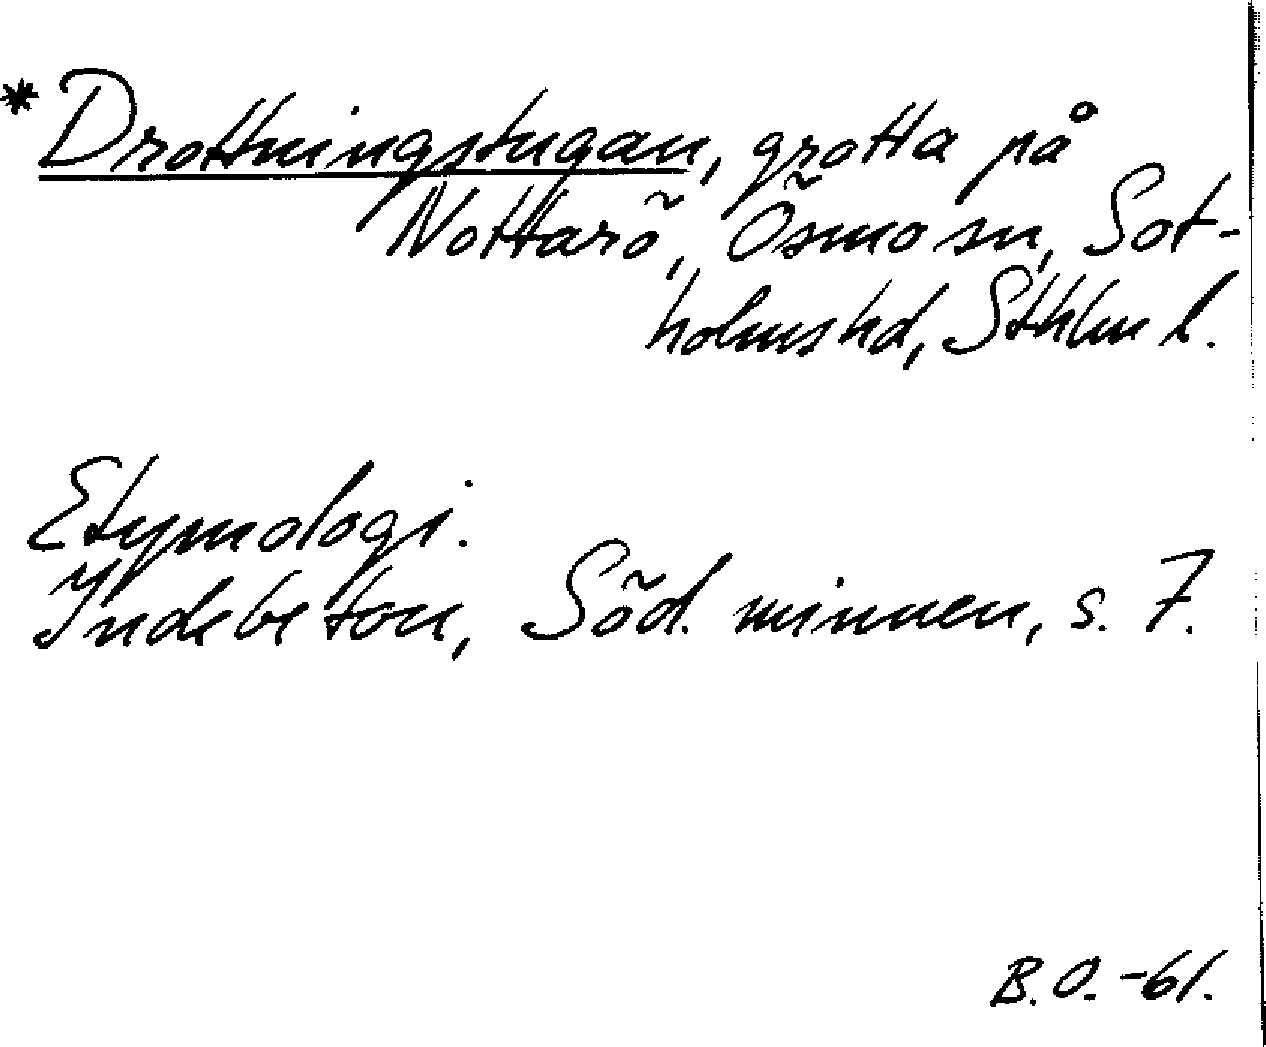 * Drottningstugan, grotta på
Nottarö, Ösmo sn, Sot-
holms hd, Sthlm l.
Etymologi.
Indebetou, Söd. minnen, s. 7.
B.O. -61.